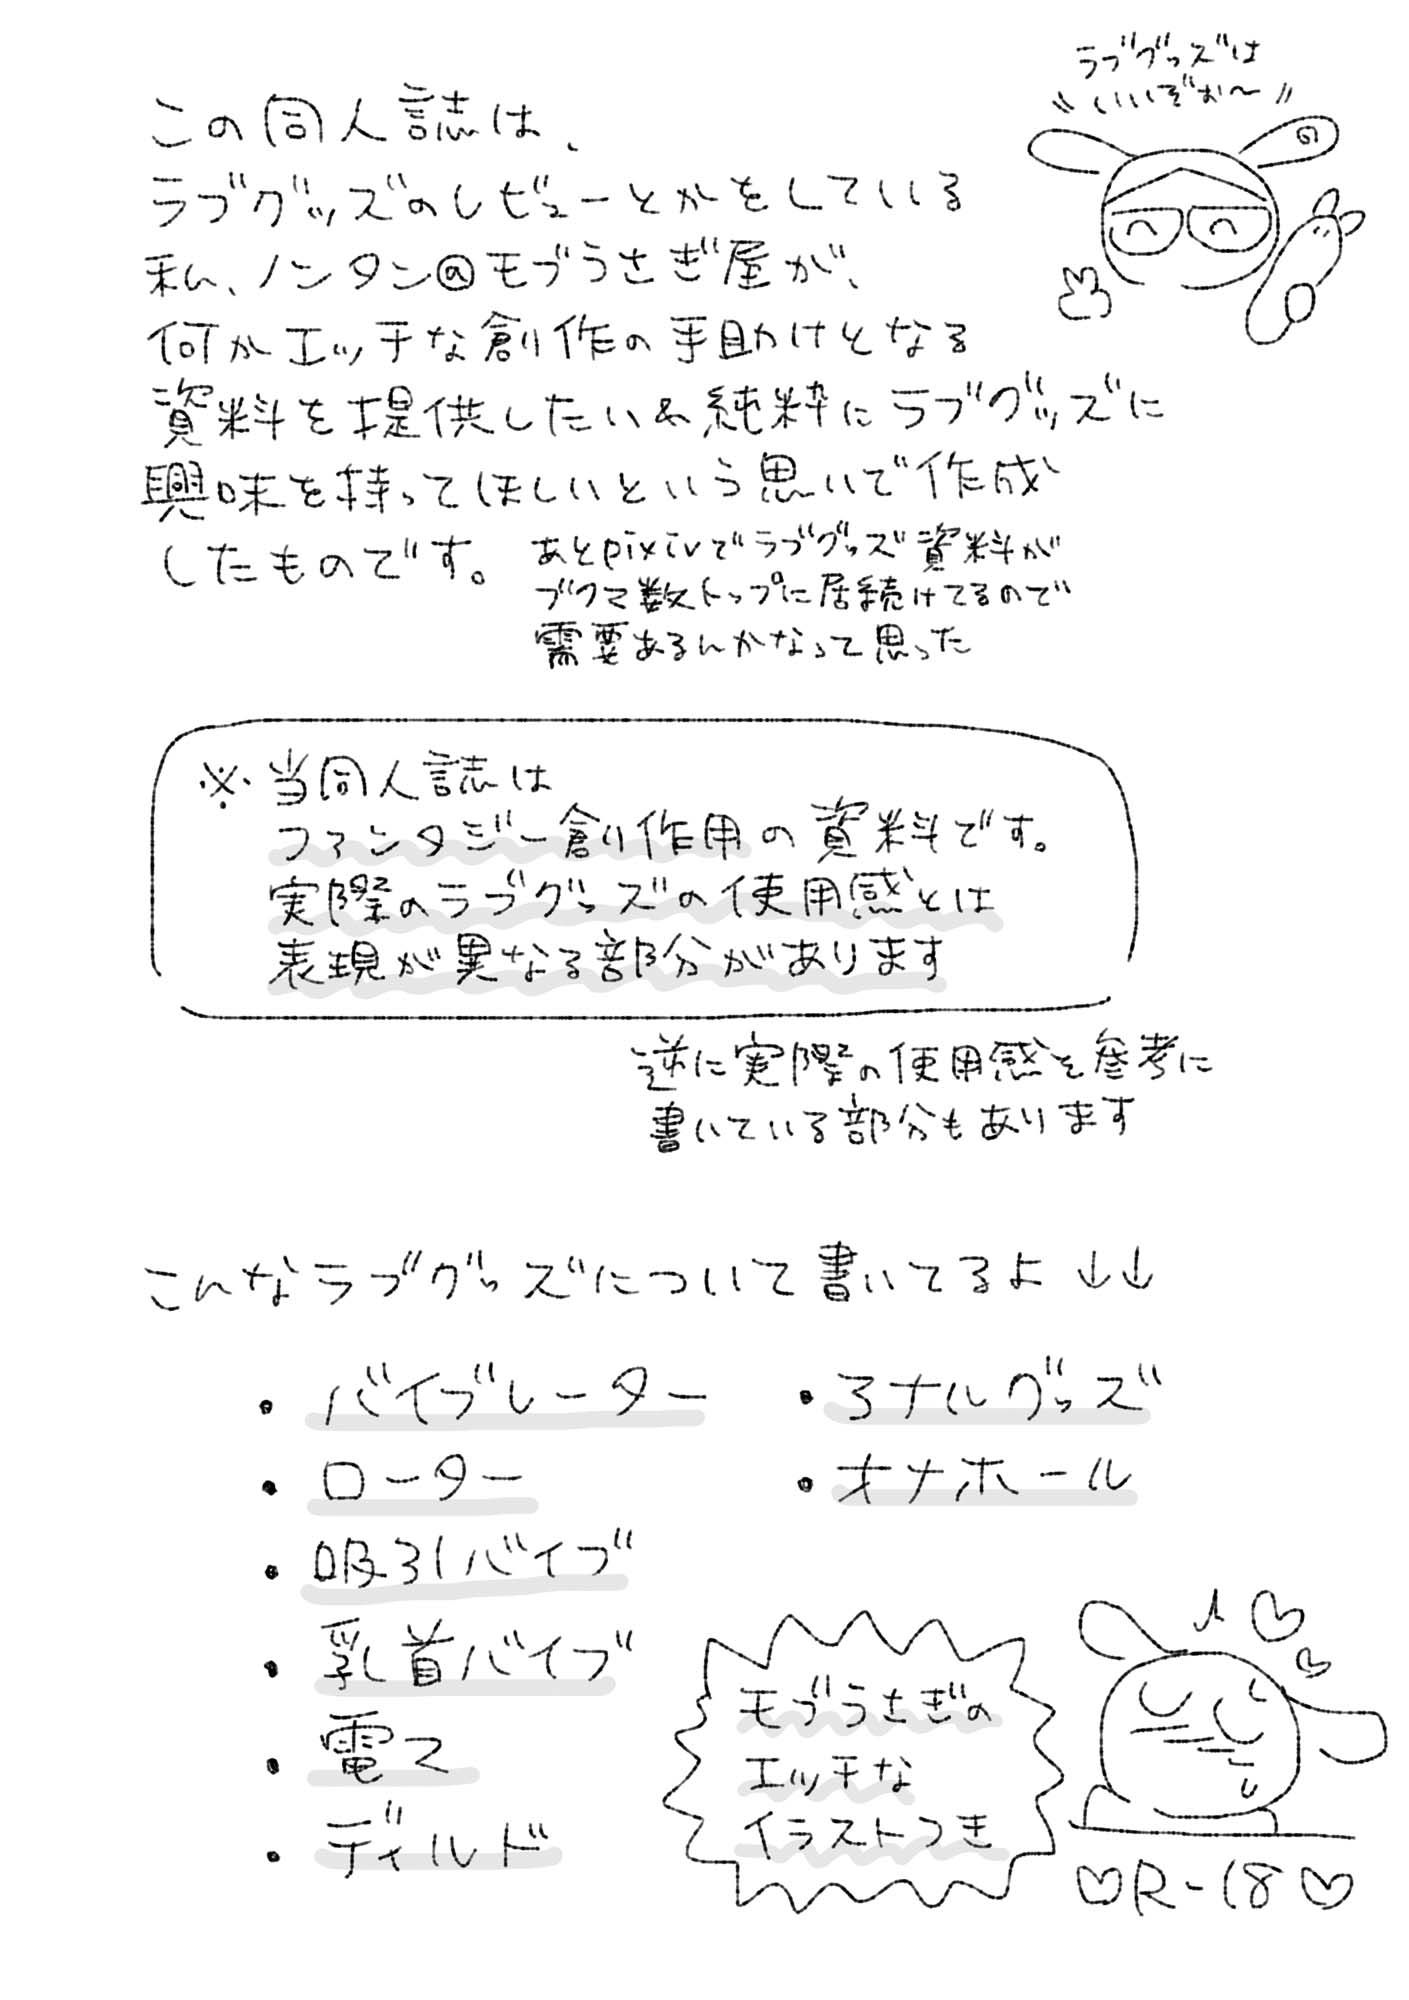 ラブグッズは
いいぞぉ〜
この同人誌は、
ラブグッズのレビューとかをしている
私、ノンタン@モブうさぎ屋が、
何かエッチな創作の手助けとなる
資料を提供したい&純粋にラブグッズに
興味を持ってほしいという思いで作成
したものです。
あとpixivでラブグッズ資料が
ブクマ数トップに居続けてるので
需要あるんかなって思った
※当同人誌は
ファンタジー創作用の資料です。
実際のラブグッズの使用感とは
表現が異なる部分があります
逆に実際の使用感を参考に
書いている部分もあります
こんなラブグッズについて書いてるよ↓↓
・バイブレーター
・ローター
・吸引バイブ
・乳首バイブ
・電マ
・ディルド
・アナルグッズ
・オナホール
モブうさぎの
エッチな
イラストつき
♡R-18♡